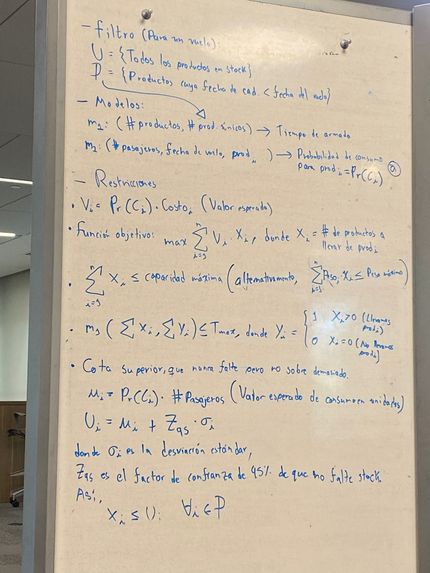 - Filtro (Para un vuelo)
U = {Todos los productos en stock}
P = {Productos cuya fecha de cad. < fecha del vuelo}
- Modelos:
m₁: (#productos, #prod. únicos) → Tiempo de armado
m₂: (#pasajeros, fecha de vuelo, prod_i) → Probabilidad de consumo
para prod_i = Pr(C_i)
- Restricciones
• V_i = Pr(C_i) · Costo_i (Valor esperado)
• Función objetivo: max Σ_{i=1}^{n} V_i · X_i, donde X_i = # de productos a
llevar de prod_i
• Σ_{i=1}^{n} X_i ≤ capacidad máxima (alternativamente, Σ_{i=1}^{n} Peso_i · X_i ≤ Peso máximo)
• m₁ (Σ X_i, Σ Y_i) ≤ T_max, donde Y_i = { 1 X_i > 0 (Llevamos prod_i)
0 X_i = 0 (No llevamos prod_i)
• Cota superior, que nunca falte pero no sobre demasiado.
μ_i = Pr(C_i) · #Pasajeros (Valor esperado de consumo en unidades)
U_i = μ_i + Z_95 · σ_i
donde σ_i es la desviación estándar,
Z_95 es el factor de confianza de 95% de que no falte stock
Así,
X_i ≤ U_i ∀i ∈ P